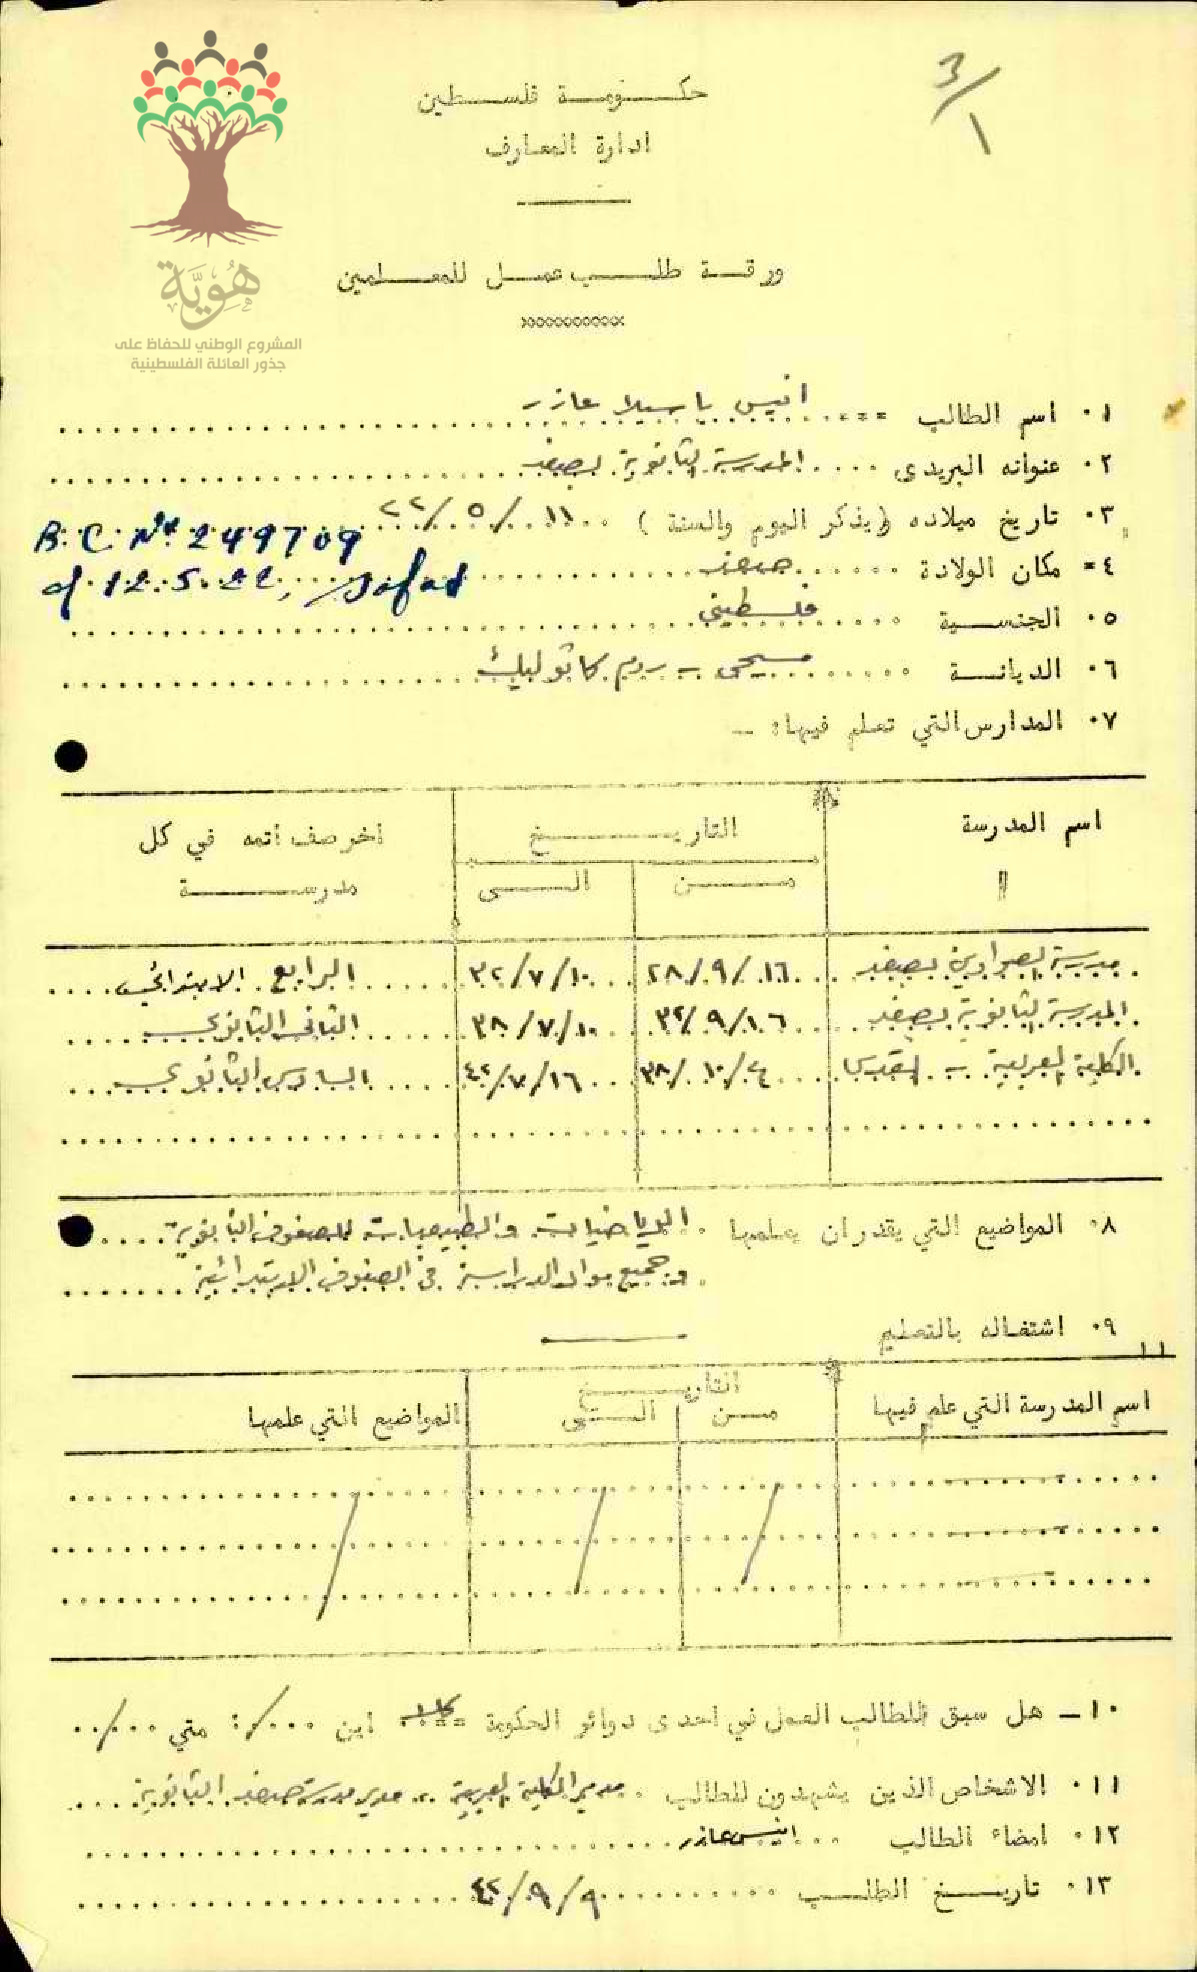 ٣/١
حكومة فلسطين
ادارة المعارف
هُوِيَّة
المشروع الوطني للحفاظ على
جذور العائلة الفلسطينية
ورقة طلب عمل للمعلمين
١٠ اسم الطالب انيس باسيلا عازر
٢٠ عنوانه البريدى المدرسة الثانوية بصفد
٣٠ تاريخ ميلاده (يذكر اليوم والسنة) ١١/٥/٢٢
B.C. No 249709
٤= مكان الولادة صفد
of 12.5.22, Safad
٥٠ الجنسية فلسطيني
٦٠ الديانة مسيحى - روم كاثوليك
٧٠ المدارس التي تعلم فيها: -
اسم المدرسة التاريخ اخر صف اتمه في كل
" من الى مدرسة
مدرسة الصوادين بصفد ١٦/٩/٢٨ ١٠/٧/٣٢ الرابع الابتدائي
المدرسة الثانوية بصفد ١٦/٩/٣٢ ١٠/٧/٣٨ الثاني الثانوي
الكلية العربية - القدس ٤/١٠/٣٨ ١٦/٧/٤٢ السادس الثانوي
٨٠ المواضيع التي يقدر ان يعلمها الرياضيات والطبيعيات للصفوف الثانوية
وجميع مواد الدراسة في الصفوف الابتدائية
٩٠ اشتغاله بالتعليم
اسم المدرسة التي علم فيها التاريخ المواضيع التي علمها
من الى
١٠- هل سبق للطالب العمل في احدى دوائر الحكومة كلا اين / متي /
١١٠ الاشخاص الذين يشهدون للطالب مدير الكلية العربية - مدير مدرسة صفد الثانوية
١٢٠ امضاء الطالب انيس عازر
١٣٠ تاريخ الطلب ٩/٩/٤٢